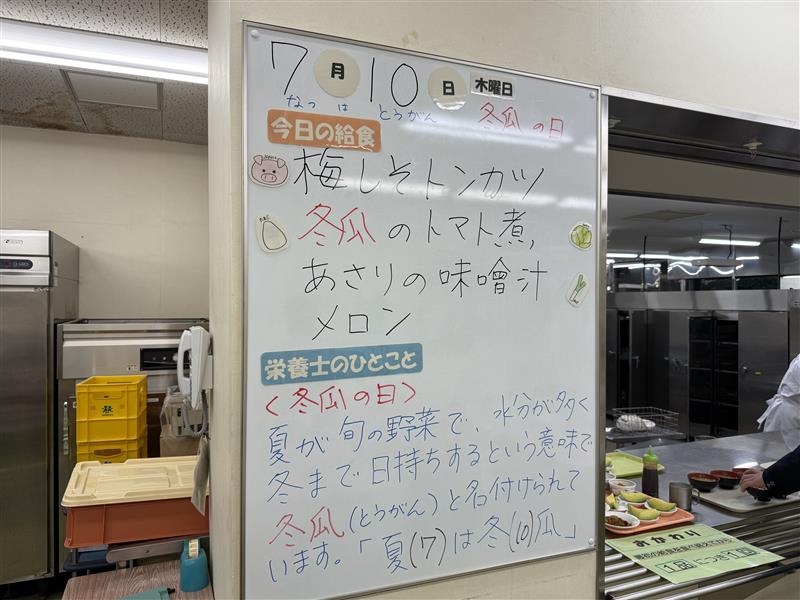 7月10日 木曜日
なつ は とうがん
冬瓜の日
今日の給食
梅しそトンカツ
冬瓜のトマト煮,
あさりの味噌汁
メロン
栄養士のひとこと
<冬瓜の日>
夏が旬の野菜で、水分が多く
冬まで日持ちするという意味で
冬瓜(とうがん)と名付けられて
います。「夏(7)は冬(10)瓜」
おかわり
1回
1回